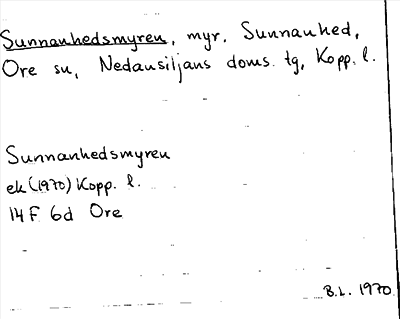 Sunnanhedsmyren, myr, Sunnanhed,
Ore sn, Nedansiljans doms. tg, Kopp. l.
Sunnanhedsmyren
ek (1970) Kopp. l.
14 F 6d Ore
B.L. 1970